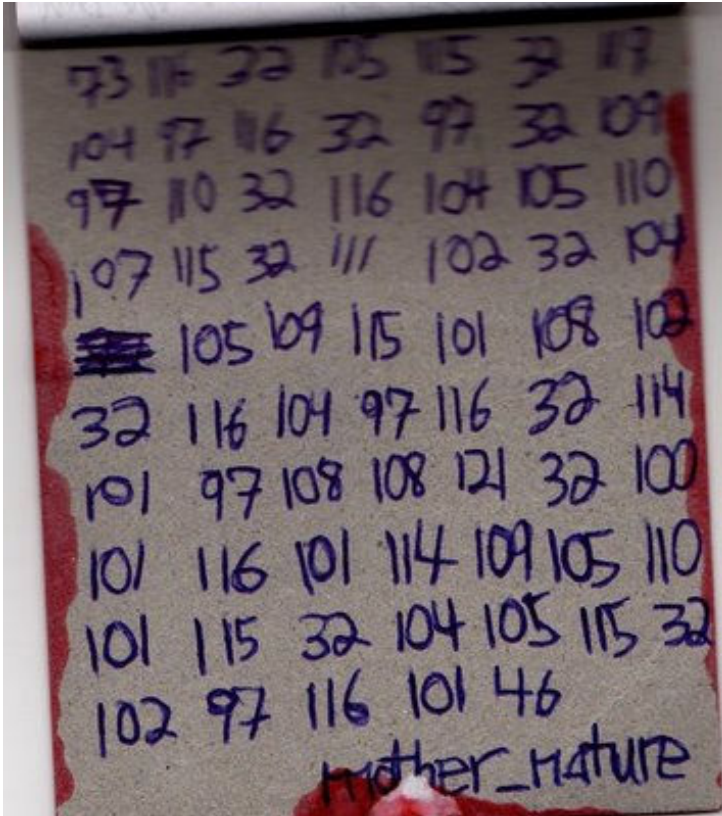 73 116 32 105 115 32 119
104 97 116 32 97 32 109
97 110 32 116 104 105 110
107 115 32 111 102 32 104
105 109 115 101 108 102
32 116 104 97 116 32 114
101 97 108 108 121 32 100
101 116 101 114 109 105 110
101 115 32 104 105 115 32
102 97 116 101 46
mother_nature